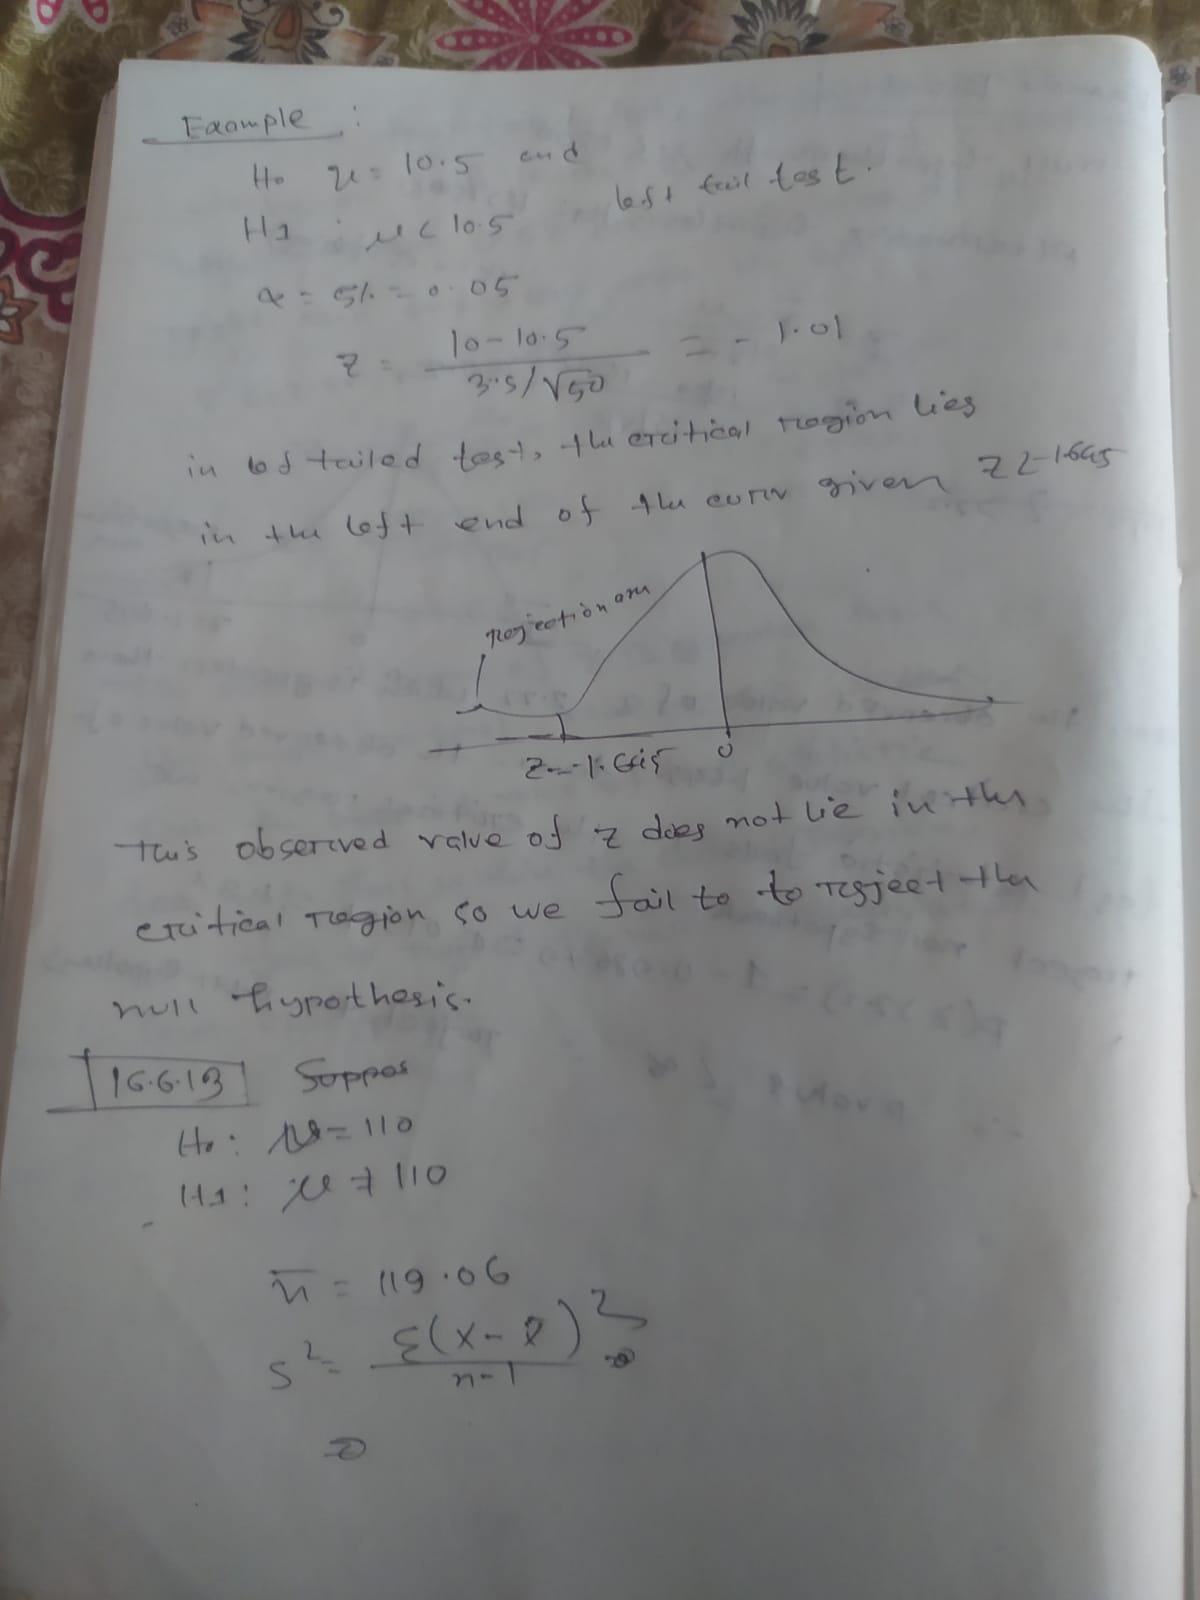 Example :
H₀ μ = 10.5 and
left tail test.
H1 : μ < 10.5
α = 5% = 0.05
z = (10 - 10.5) / (3.5/√50) = - 1.01
in left tailed test, the critical region lies
in the left end of the curv given Z < -1.645
rejection area
Z = -1.645 0
This observed value of z does not lie in the
critical region so we fail to to reject the
null hypothesis.
16.6.13 Suppos
H₀ : μ = 110
H1 : μ ≠ 110
x̄ = 119.06
s² = Σ(x - x̄)² / n-1